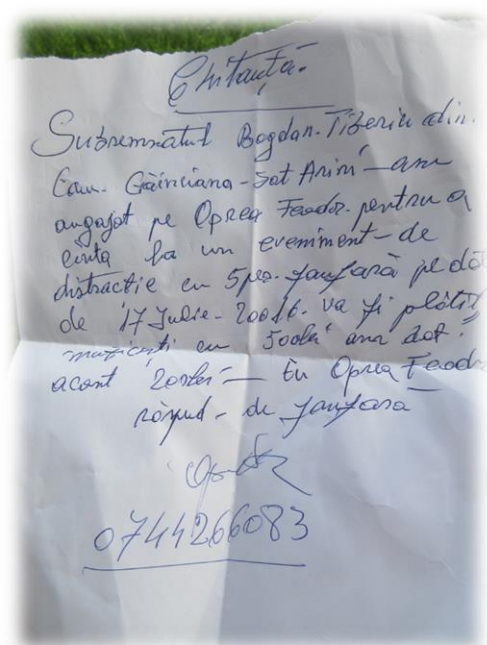 Chitanță.
Subsemnatul Bogdan. Tiberiu din.
Com. Găiniciana - Sat Arini - am
angajat pe Oprea Feodor. pentru a
cinta la un eveniment - de
distractie cu 5 per. fanfară pe data
de 17 Julie - 20016. va fi plătit
muzicești cu 500lei am dat
acont 200lei - Eu Oprea Feodor
răspud - de fanfara
0744266083